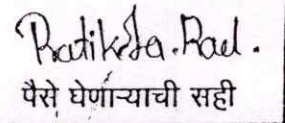 Pratiksha.Rael.
पैसे घेणाऱ्याची सही